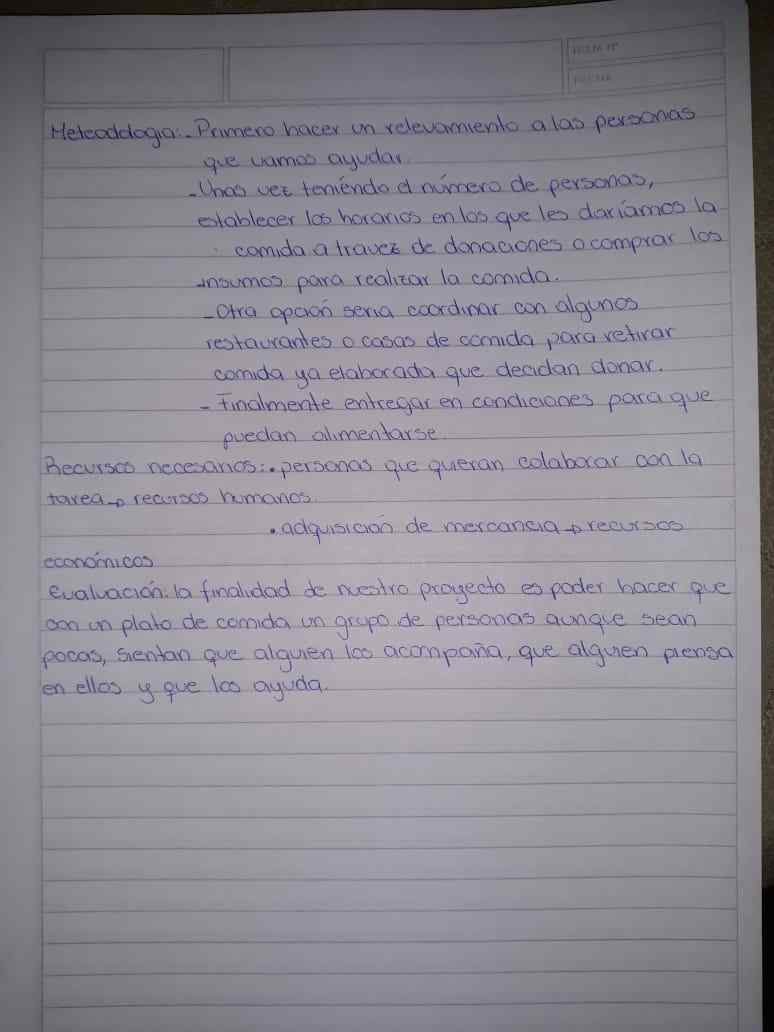 HOJA Nº
FECHA
Metodología:- Primero hacer un relevamiento a las personas
que vamos ayudar.
- Unas vez teniéndo el número de personas,
establecer los horarios en los que les daríamos la
comida a travez de donaciones o comprar los
insumos para realizar la comida.
- Otra opción seria coordinar con algunos
restaurantes o casas de comida para retirar
comida ya elaborada que decidan donar.
- Finalmente entregar en condiciones para que
puedan alimentarse.
Recursos necesarios:• personas que quieran colaborar con la
tarea → recursos humanos.
• adquisición de mercancia → recursos
económicos
Evaluación: la finalidad de nuestro proyecto es poder hacer que
con un plato de comida un grupo de personas aunque sean
pocas, sientan que alguien los acompaña, que alguien piensa
en ellos y que los ayuda.